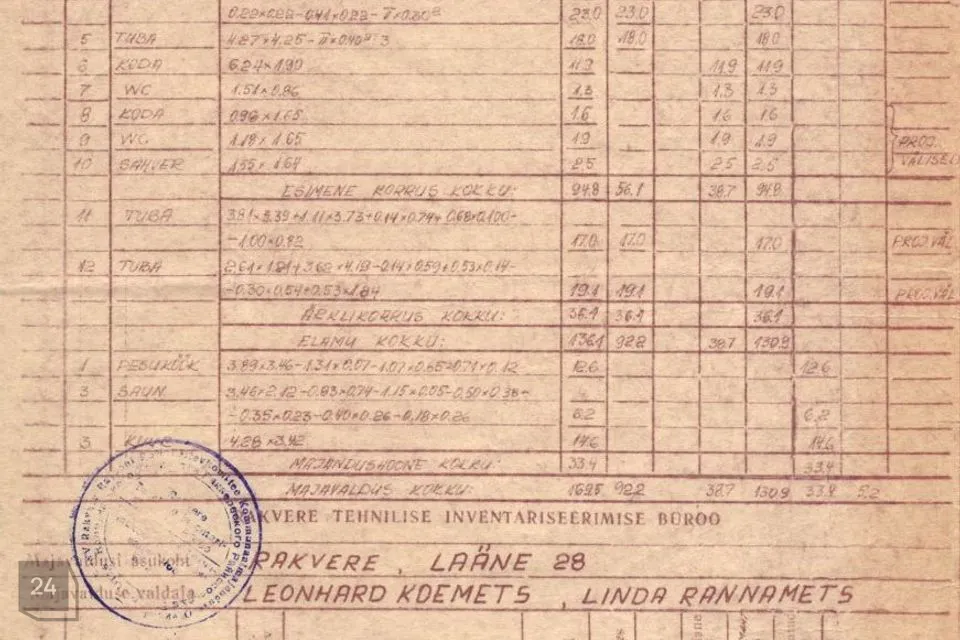 0.22×0.22-0.41×0.22- 23.0 23.0 23.0
5 TUBA 4.27×4.25- 18.0 18.0 18.0
6 KODA 6.24×1.90 11.9 11.9 11.9
7 WC 1.51×0.86 1.3 1.3 1.3
8 KODA 0.96×1.65 1.6 1.6 1.6
9 WC 1.18×1.65 1.9 1.9 1.9 PROJ.
10 SAHVER 1.55×1.64 2.5 2.5 2.5 VÄLISELT
ESIMENE KORRUS KOKKU: 94.8 56.1 38.7 94.8
11 TUBA 3.81×3.39+1.11×3.73+0.14×0.74+0.68×0.100-
-1.00×0.82 17.0 17.0 17.0 PROJ.VÄL
12 TUBA 2.61×1.81+3.62×4.19-0.14×0.59+0.53×0.14-
-0.30×0.54+0.53×1.84 19.1 19.1 19.1 PROJ.VÄL
ÄRKLIKORRUS KOKKU: 36.1 36.1 36.1
ELAMU KOKKU: 136.1 92.2 38.7 130.9
1 PESUKÖÖK 3.89×3.46-1.31×0.07-1.07×0.65-0.71×0.12 12.6 12.6
3 SAUN 3.46×2.12-0.83×0.74-1.15×0.05-0.50×0.38-
-0.35×0.23-0.40×0.26-0.18×0.26 6.2 6.2
3 4.28×3.42 14.6 14.6
MAJANDUSHOONE KOKKU: 33.4 33.4
MAJAVALDUS KOKKU: 169.5 92.2 38.7 130.9 33.4 5.2
RAKVERE TEHNILISE INVENTARISEERIMISE BÜROO
Majavaldusi asukoht RAKVERE, LÄÄNE 28
Majavalduse valdaja LEONHARD KOEMETS, LINDA RANNAMETS
24